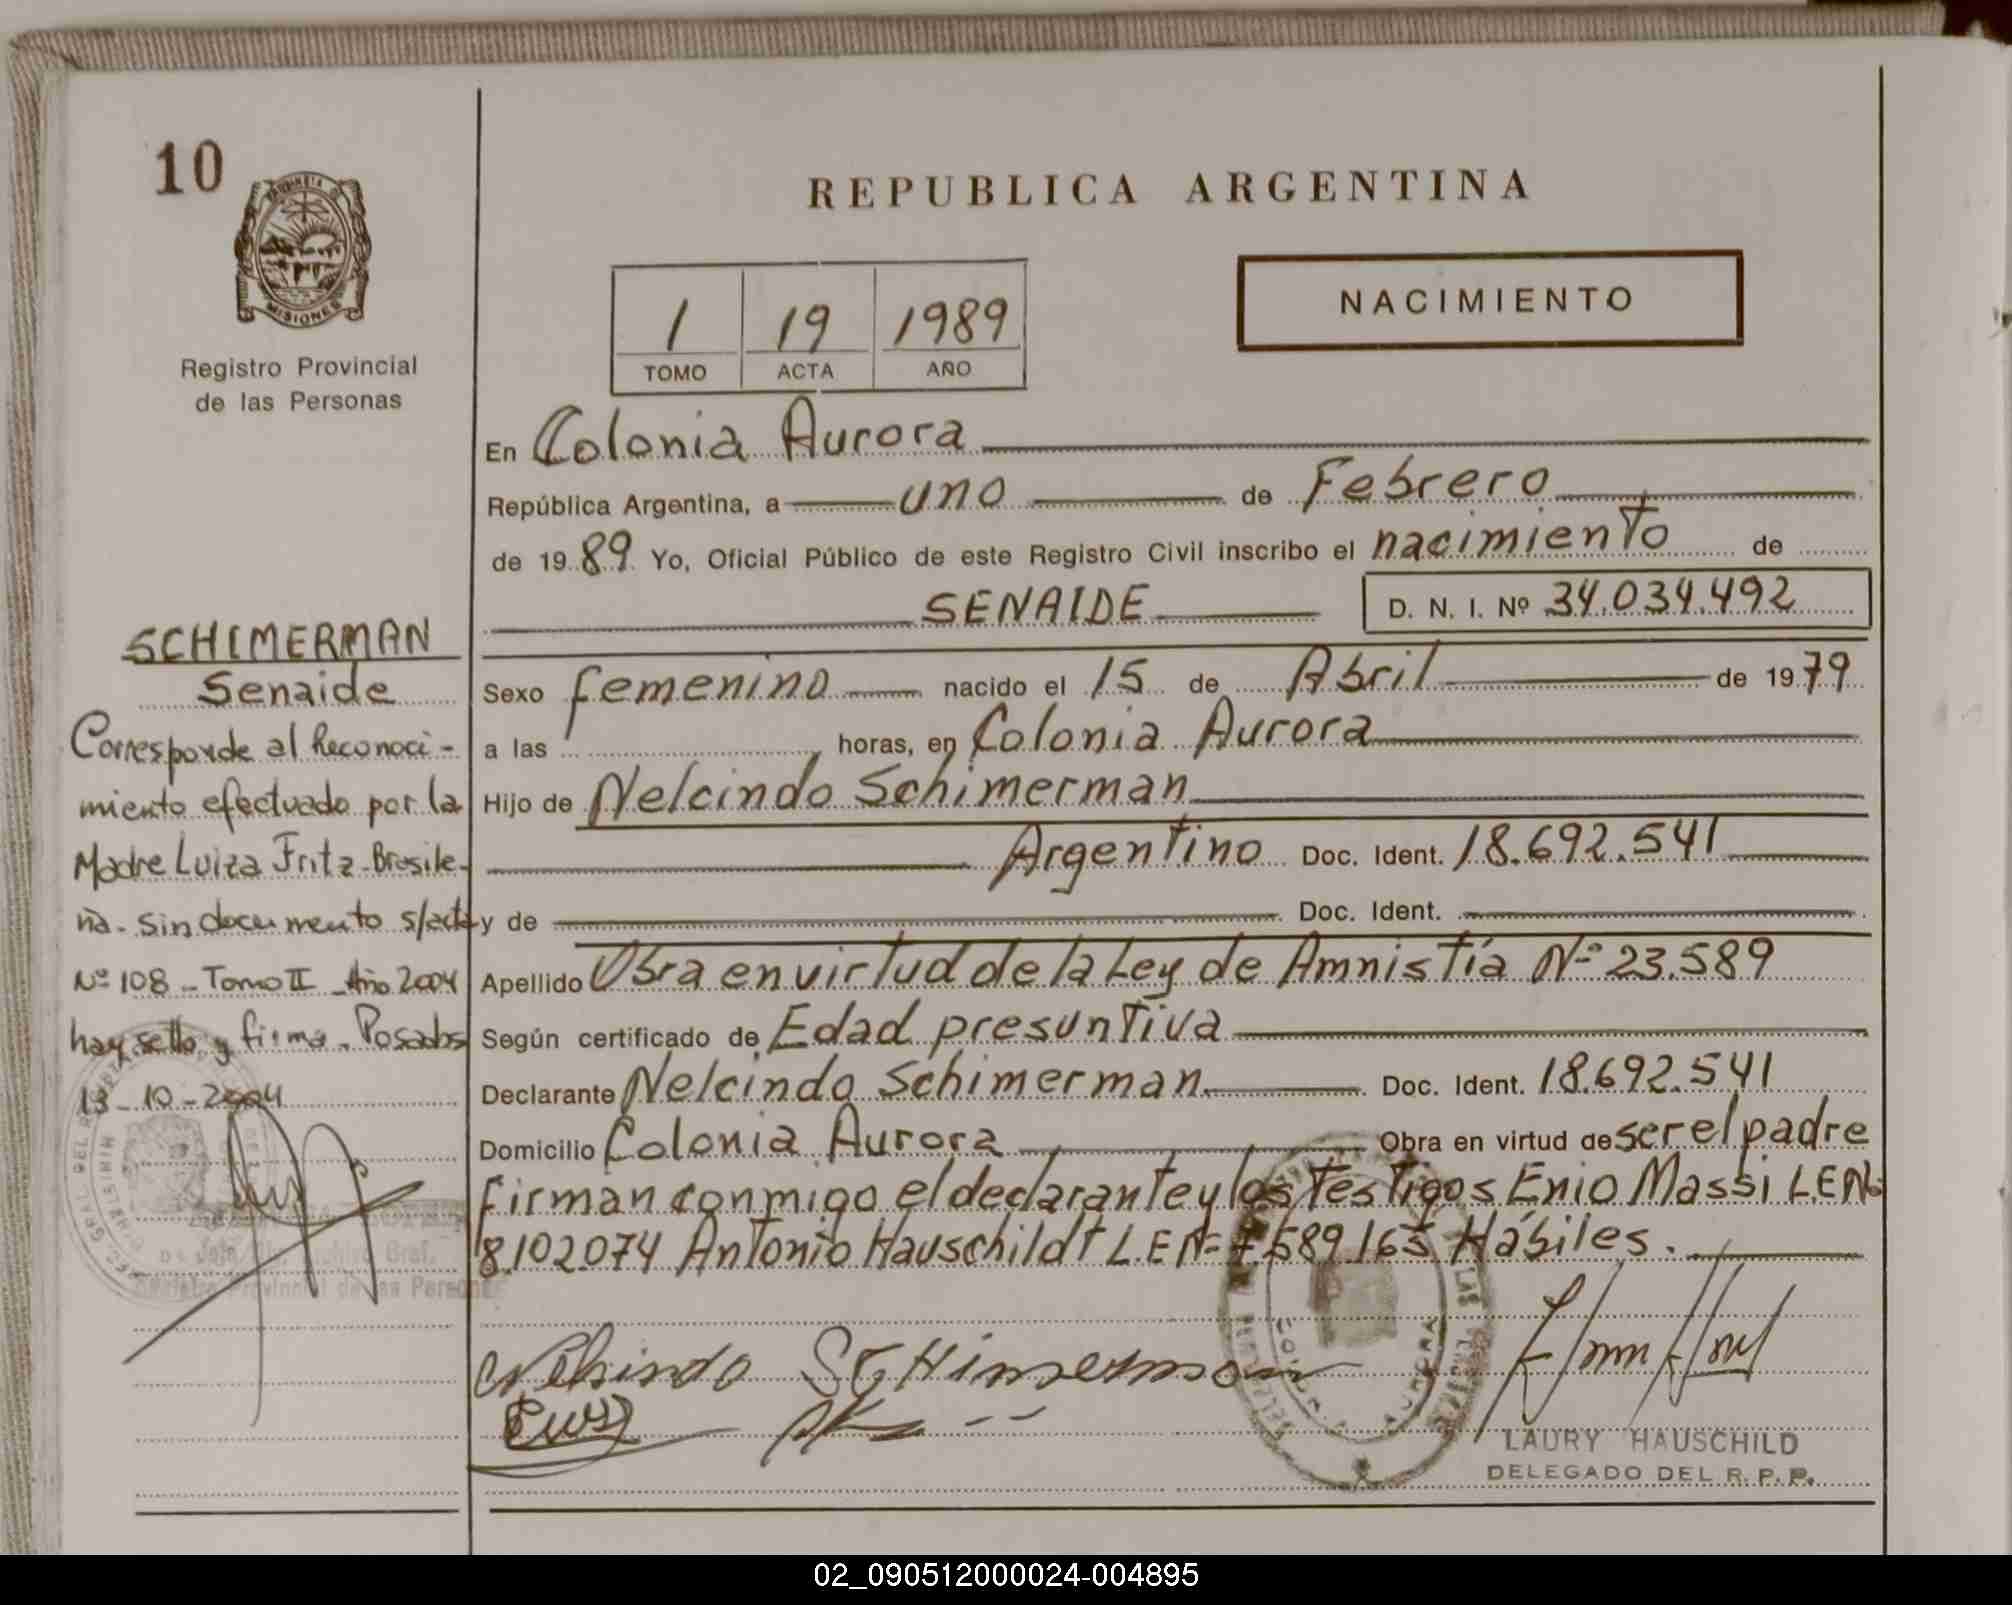 10
PROVINCIA DE
MISIONES
Registro Provincial
de las Personas
REPUBLICA ARGENTINA
1 19 1989
TOMO ACTA AÑO
NACIMIENTO
En Colonia Aurora
República Argentina, a uno de Febrero
de 1989 Yo, Oficial Público de este Registro Civil inscribo el nacimiento de
SENAIDE D. N. I. Nº 34.034.492
Sexo femenino nacido el 15 de Abril de 1979
a las horas, en Colonia Aurora
Hijo de Nelcindo Schimerman
Argentino Doc. Ident. 18.692.541
y de Doc. Ident.
Apellido Obra en virtud de la Ley de Amnistía Nº 23.589
Según certificado de Edad presuntiva
Declarante Nelcindo Schimerman Doc. Ident. 18.692.541
Domicilio Colonia Aurora Obra en virtud de ser el padre
firman conmigo el declarante y los Testigos Enio Massi L.E Nº
8.102.074 Antonio Hauschildt L.E Nº 7.589.163 Hábiles.
SCHIMERMAN
Senaide
Corresponde al Reconoci-
miento efectuado por la
Madre Luiza Fritz-Brasile-
ña. Sin documento s/acta
Nº 108 - Tomo II - Año 2004
hay sello y firma. Posadas
13-10-2004
Nelsindo Schimerman
COLONIA AURORA
LAURY HAUSCHILD
DELEGADO DEL R. P. P.
02_090512000024-004895